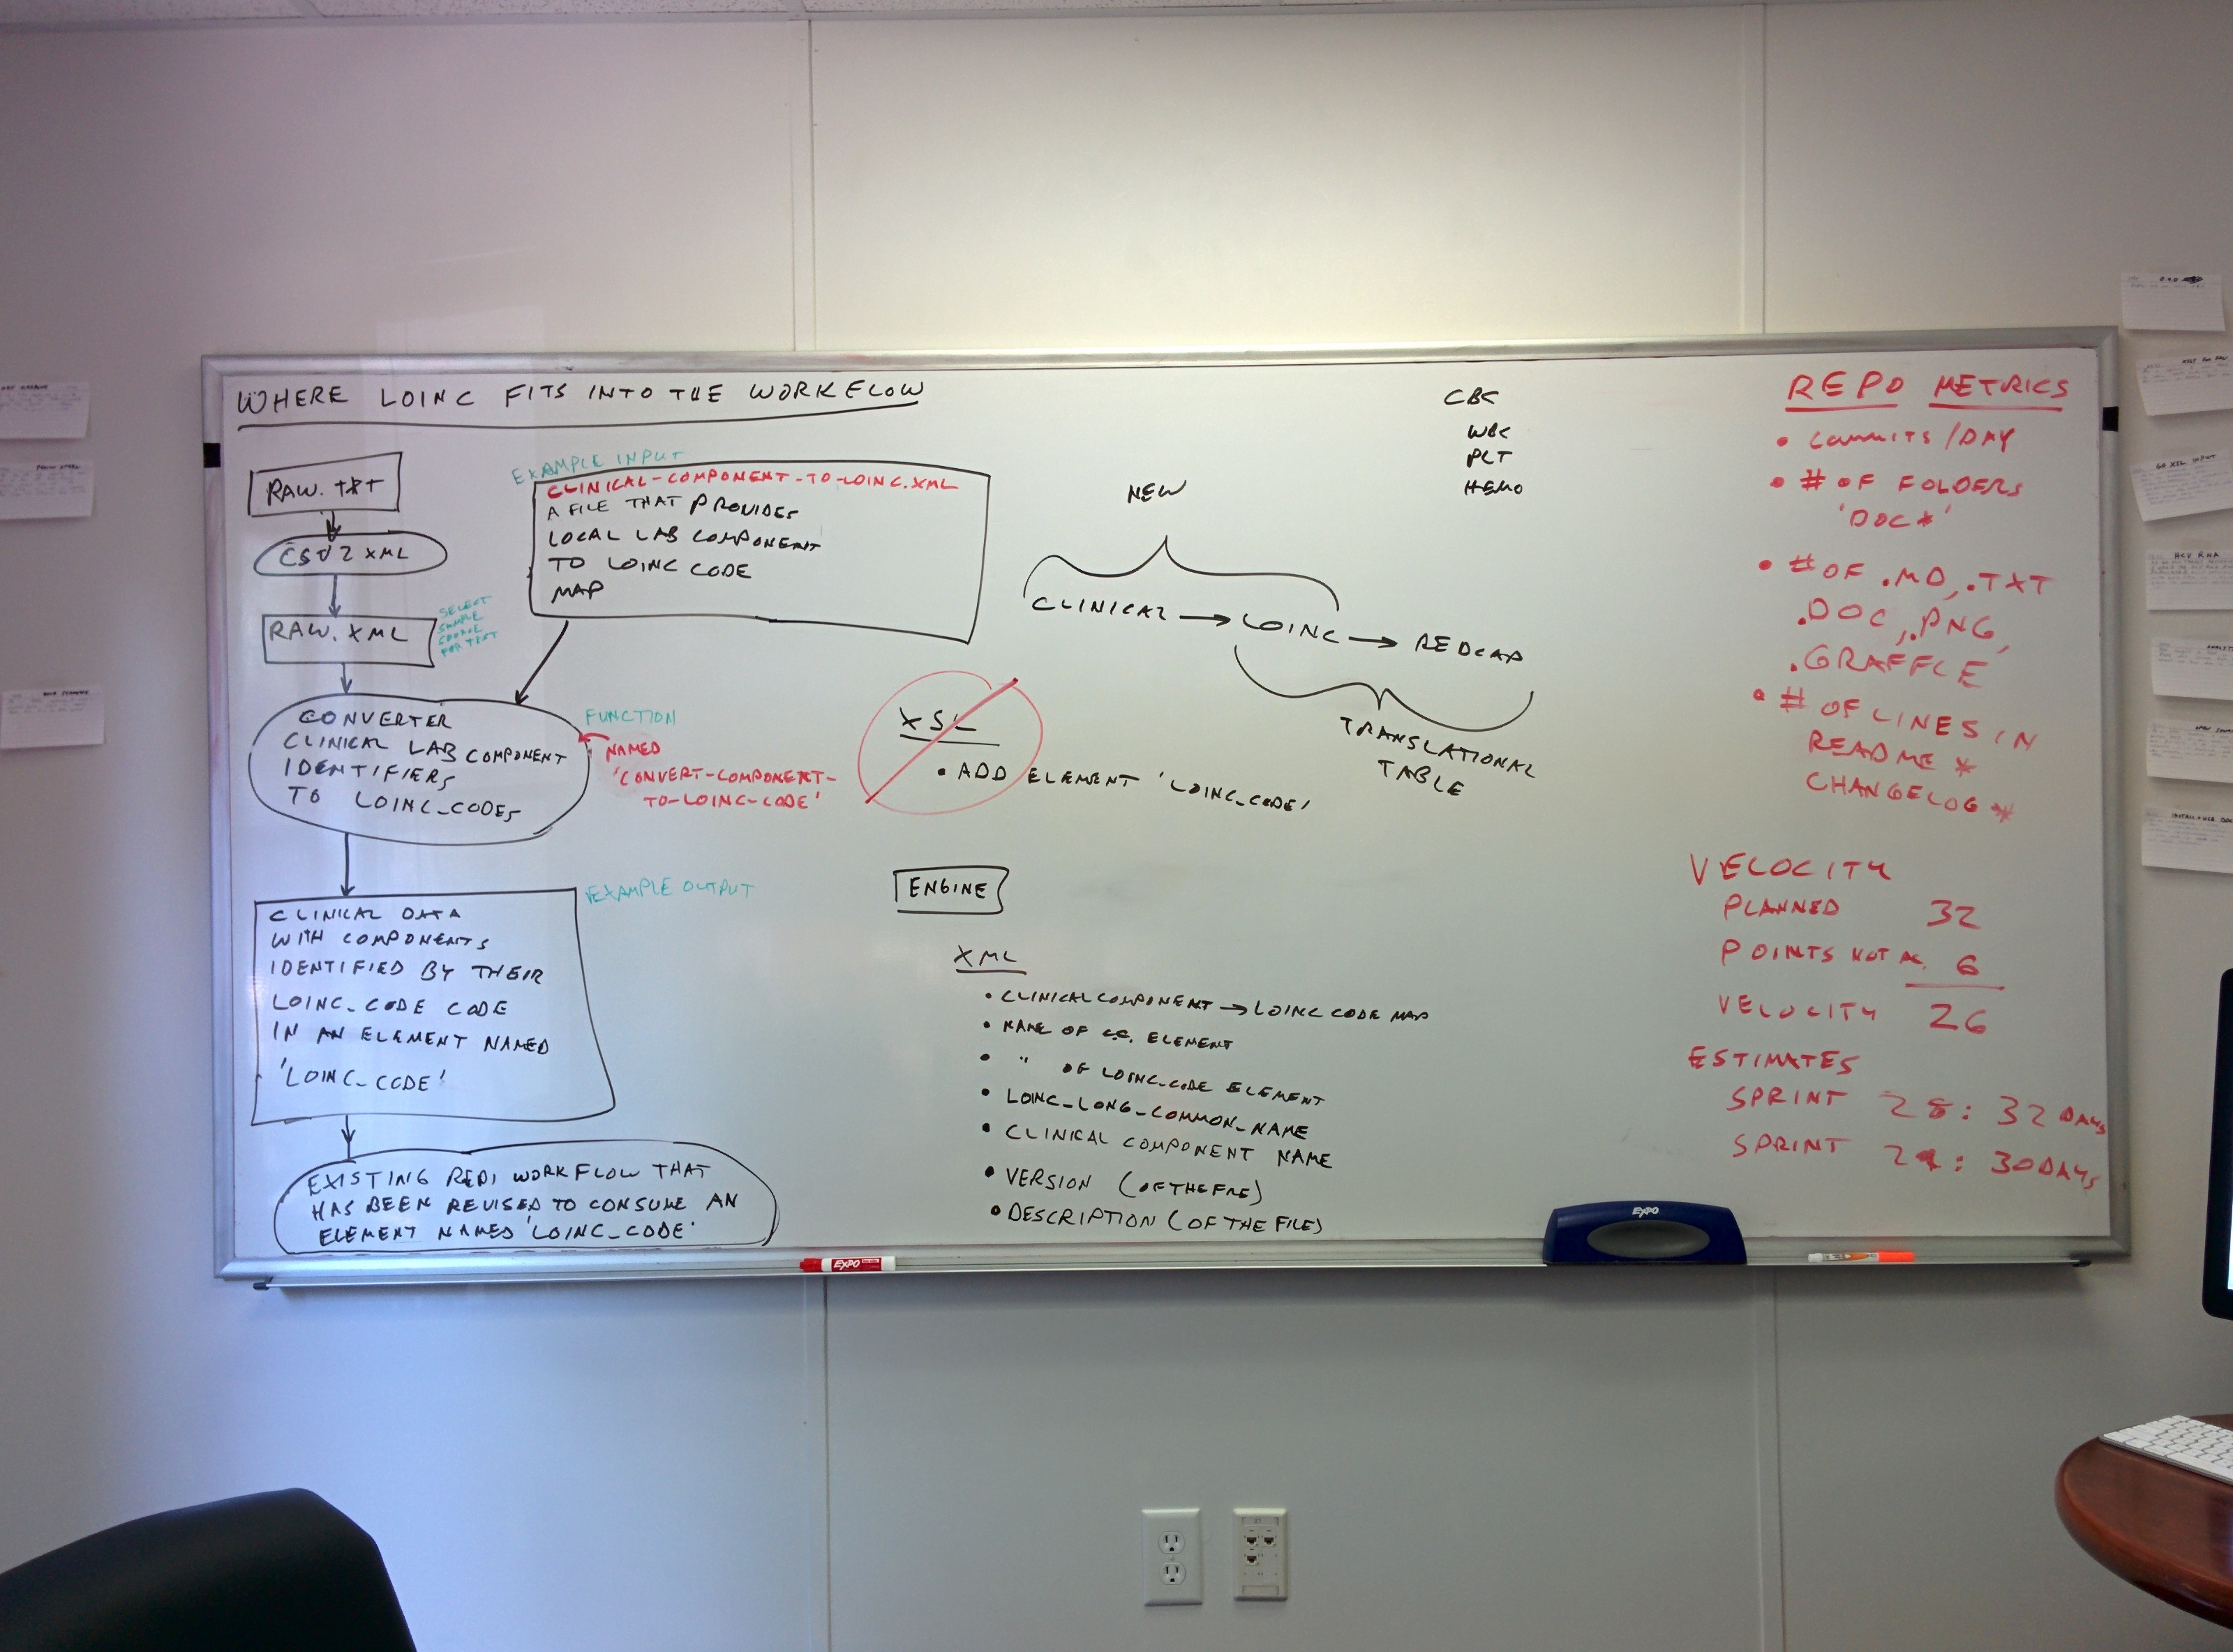 WHERE LOINC FITS INTO THE WORKFLOW
RAW.TXT
CSV2XML
RAW.XML
SELECT
SAMPLE
SOURCE
FOR TEST
EXAMPLE INPUT
CLINICAL-COMPONENT-TO-LOINC.XML
A FILE THAT PROVIDES
LOCAL LAB COMPONENT
TO LOINC CODE
MAP
CONVERTER
CLINICAL LAB COMPONENT
IDENTIFIERS
TO LOINC_CODES
FUNCTION
NAMED
'CONVERT-COMPONENT-
TO-LOINC-CODE'
EXAMPLE OUTPUT
CLINICAL DATA
WITH COMPONENTS
IDENTIFIED BY THEIR
LOINC_CODE CODE
IN AN ELEMENT NAMED
'LOINC_CODE'
EXISTING REDI WORKFLOW THAT
HAS BEEN REVISED TO CONSUME AN
ELEMENT NAMED 'LOINC_CODE'
CBC
WBC
PLT
HEMO
NEW
CLINICAL → LOINC → REDCAP
TRANSLATIONAL
TABLE
XSL
• ADD ELEMENT 'LOINC_CODE'
ENGINE
XML
• CLINICAL COMPONENT → LOINC CODE MAP
• NAME OF C.C. ELEMENT
• " OF LOINC_CODE ELEMENT
• LOINC_LONG_COMMON_NAME
• CLINICAL COMPONENT NAME
• VERSION (OF THE FILE)
• DESCRIPTION (OF THE FILE)
REPO METRICS
• COMMITS/DAY
• # OF FOLDERS
'DOC*'
• # OF .MD, .TXT
.DOC, .PNG,
.GRAFFLE
• # OF LINES IN
README *
CHANGELOG *
VELOCITY
PLANNED 32
POINTS NOT AC. 6
VELOCITY 26
ESTIMATES
SPRINT 28: 32 DAYS
SPRINT 29: 30 DAYS
EXPO
EXPO
HCV RNA